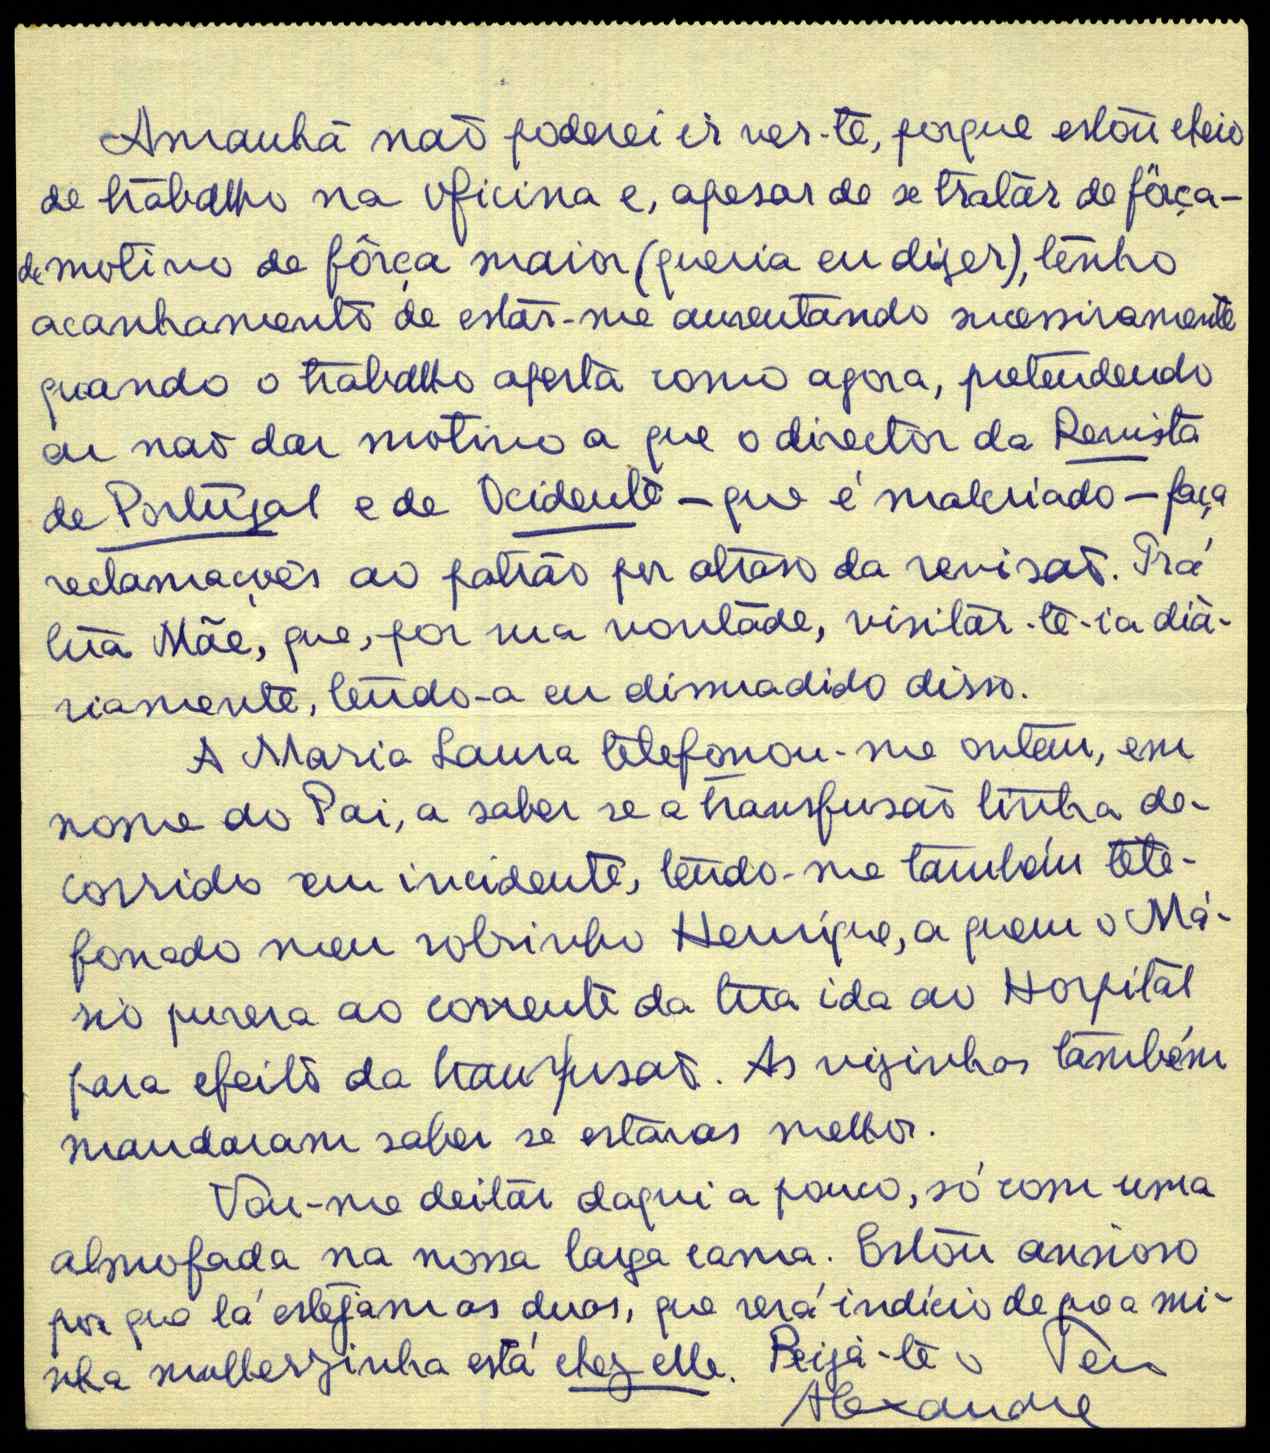 Amanhã não poderei ir ver-te, porque estou cheio
de trabalho na oficina e, apesar de se tratar de fôrça-
de motivo de fôrça maior (queria eu dizer), tenho
acanhamento de estar-me ausentando sucessivamente
quando o trabalho aperta como agora, pretendendo
eu não dar motivo a que o director da Revista
de Portugal e de Ocidente — que é malcriado — faça
reclamações ao patrão por atraso da revisão. Irá
tua Mãe, que, por sua vontade, visitar-te-ia dià-
riamente, tendo-a eu dissuadido disso.
A Maria Laura telefonou-me ontem, em
nome do Pai, a saber se a transfusão tinha de-
corrido sem incidente, tendo-me também tele-
fonado meu sobrinho Henrique, a quem o Má-
rio pusera ao corrente da tua ida ao Hospital
para efeito da transfusão. As vizinhas também
mandaram saber se estavas melhor.
Vou-me deitar daqui a pouco, só com uma
almofada na nossa larga cama. Estou ansioso
por que lá estejam as duas, que será indício de que a mi-
nha mulherzinha está chez elle. Beija-te o Teu
Alexandre